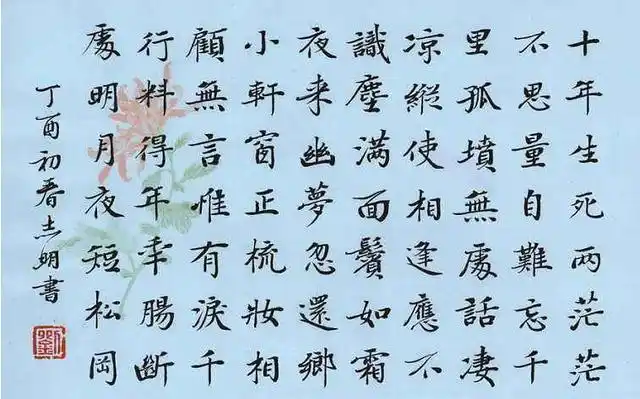 十年生死两茫茫
不思量自難忘千
里孤墳無處話凄
凉縱使相逢應不
識塵满面鬢如霜
夜来幽夢忽還鄉
小軒窗正梳妝相
顧無言惟有淚千
行料得年年腸斷
處明月夜短松岡
丁酉初春志明書
劉